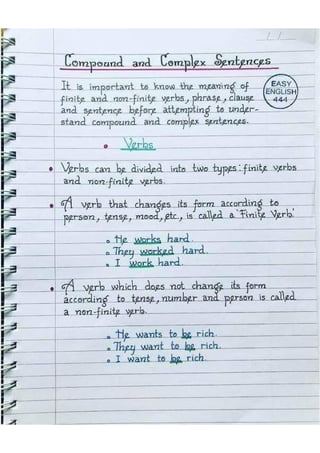 Compound and Complex Sentences
EASY
ENGLISH
444
It is important to know the meaning of
finite and non-finite verbs, phrase, clause
and sentence before attempting to under-
stand compound and complex sentences.
• Verbs
• Verbs can be divided into two types: finite verbs
and non-finite verbs.
• A verb that changes its form according to
person, tense, mood, etc., is called a 'Finite Verb'.
• He works hard.
• They worked hard.
• I work hard.
• A verb which does not change its form
according to tense, number and person is called
a non-finite verb.
• He wants to be rich.
• They want to be rich.
• I want to be rich.